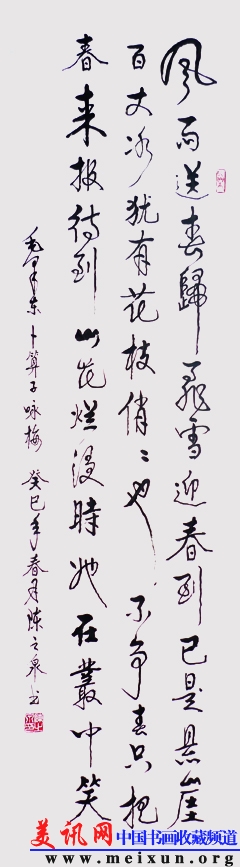 风雨送春歸飛雪迎春到已是悬崖
百丈冰犹有花枝俏〻也不争春只把
春来报待到山花烂漫時她在叢中笑
毛泽东卜算子咏梅 癸巳年春月陈之泉书
美讯网 中国书画收藏频道
www.meixun.org